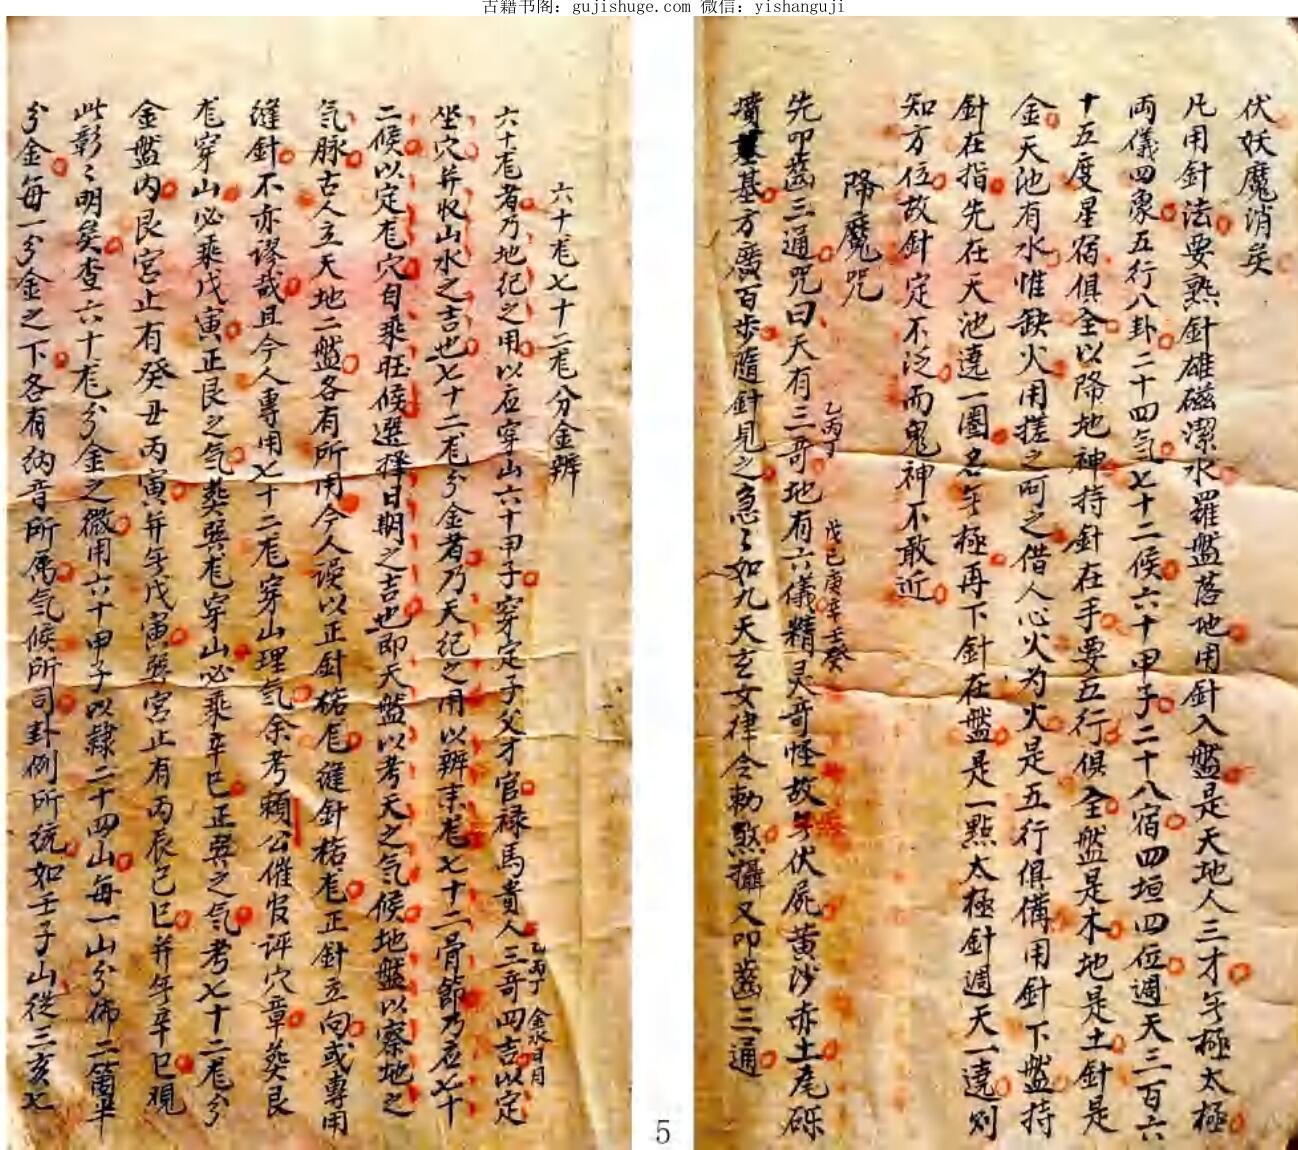 古籍书阁：gujishuge.com 微信：yishanguji
伏妖魔消矣
凡用針法要熟針雄磁潔水羅盤落地用針入盤是天地人三才無極太極
両儀四象五行八卦二十四气七十二候六十甲子二十八宿四垣四位週天三百六
十五度星宿俱全以降地神持針在手要五行俱全盤是木地是土針是
金天池有水惟缺火用搓之呵之借人心火为火是五行俱備用針下盤持
針在指先在天池遶一圈名無極再下針在盤是一點太極針週天一遶則
知方位故針定不泛而鬼神不敢近
降魔咒
先叩齒三通咒曰天有三竒乙丙丁地有六儀戊己庚辛壬癸精灵竒怪故無伏屍黄沙赤土瓦砾
墳基方廣百步隨針見之急〻如九天玄女律令勅煞攝又叩齒三通
六十龙七十二龙分金辨
六十龙者乃地纪之用以应穿山六十甲子穿定子父才官禄馬貴人三竒乙丙丁四吉金水日月以定
坐穴并収山水之吉也七十二龙分金者乃天纪之用以辨来龙七十二骨節乃应七十
二候以定龙穴自乘旺候選擇日期之吉也即天盤以考天之气候地盤以察地之
气脉古人立天地二盤各有所用今人误以正針格龙縫針格龙正針立向或專用
縫針不亦謬哉且今人專用七十二龙穿山理气余考頼公催官评穴章葬艮
龙穿山必乘戊寅正艮之气葬巽龙穿山必乘辛巳正巽之气考七十二龙分
金盤内艮宮止有癸丑丙寅并無戊寅巽宮止有丙辰己巳并無辛巳观
此彰〻明矣查六十龙分金之微用六十甲子以隸二十四山每一山分佈二箇半
分金每一分金之下各有納音所属气候所司卦例所统如壬子山從三亥七
5